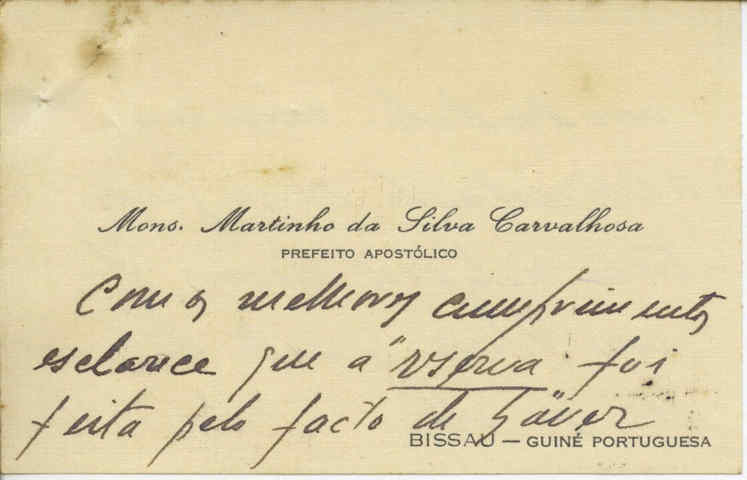 Mons. Martinho da Silva Carvalhosa
PREFEITO APOSTÓLICO
Com os melhores cumprimentos
esclarece que a "reserva" foi
feita pelo facto de haver
BISSAU — GUINÉ PORTUGUESA